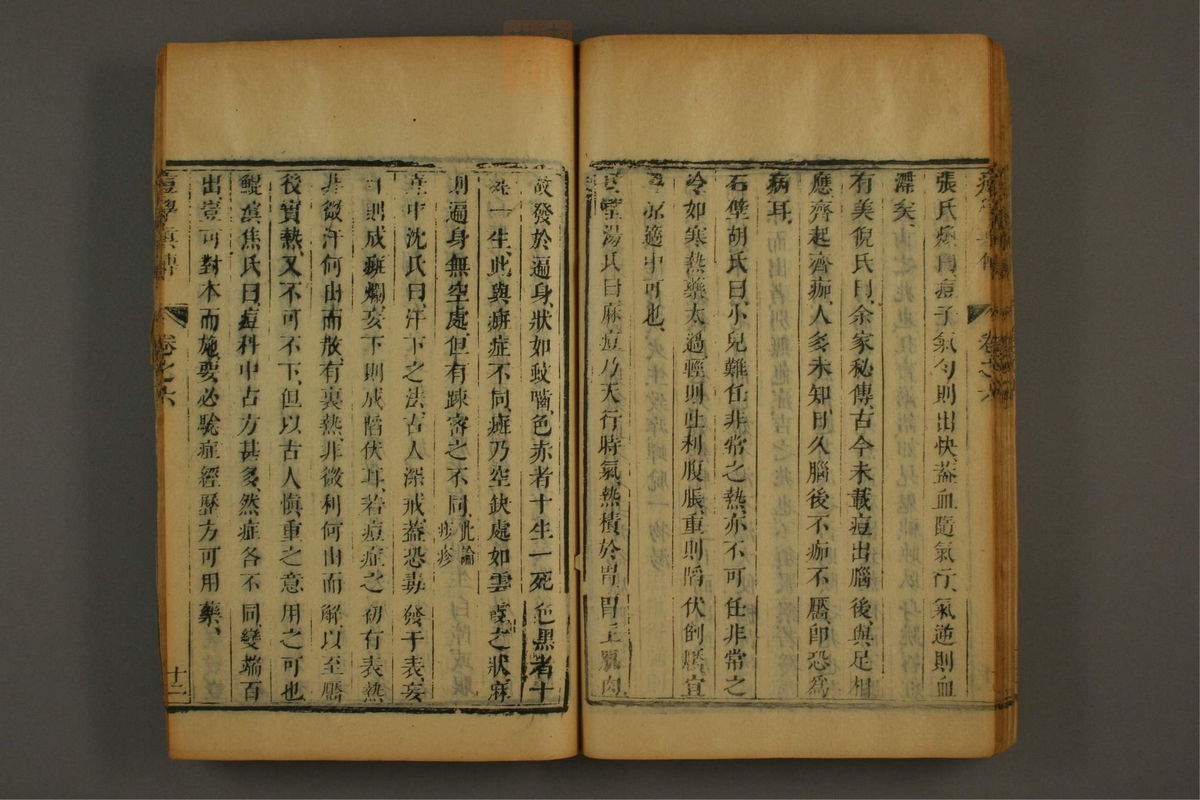 張氏煥曰痘子氣匀則出快蓋血隨氣行氣逆則血
滯矣
有美倪氏曰余家秘傳古今未載痘出腦後與足相
應齊起齊痂人多未知日久腦後不痂不靨卽恐爲
病耳
石壁胡氏曰小兒難任非常之熱亦不可任非常之
冷如寒熱藥太過輕則吐利腹脹重則陷伏倒靨宜
適中可也
湯氏曰麻痘乃天行時氣熱積於胃胃主肌肉
故發於遍身狀如蚊嚙色赤者十生一死色黑者十
死一生此與癍症不同癍乃空缺處如雲霞之狀麻
則遍身無空處但有疎密之不同此論疹疹
中沈氏曰汗下之法古人深戒蓋恐毒發于表妄
則成癍爛妄下則成陷伏耳若痘症之初有表熱
非微汗何由而散有裏熱非微利何由而解以至靨
後實熱又不可不下但以古人慎重之意用之可也
鯤溟焦氏曰痘科中古方甚多然症各不同變端百
出豈可對本而施要必驗症經歷方可用藥
卷之六
十二
痘學真傳
卷之六